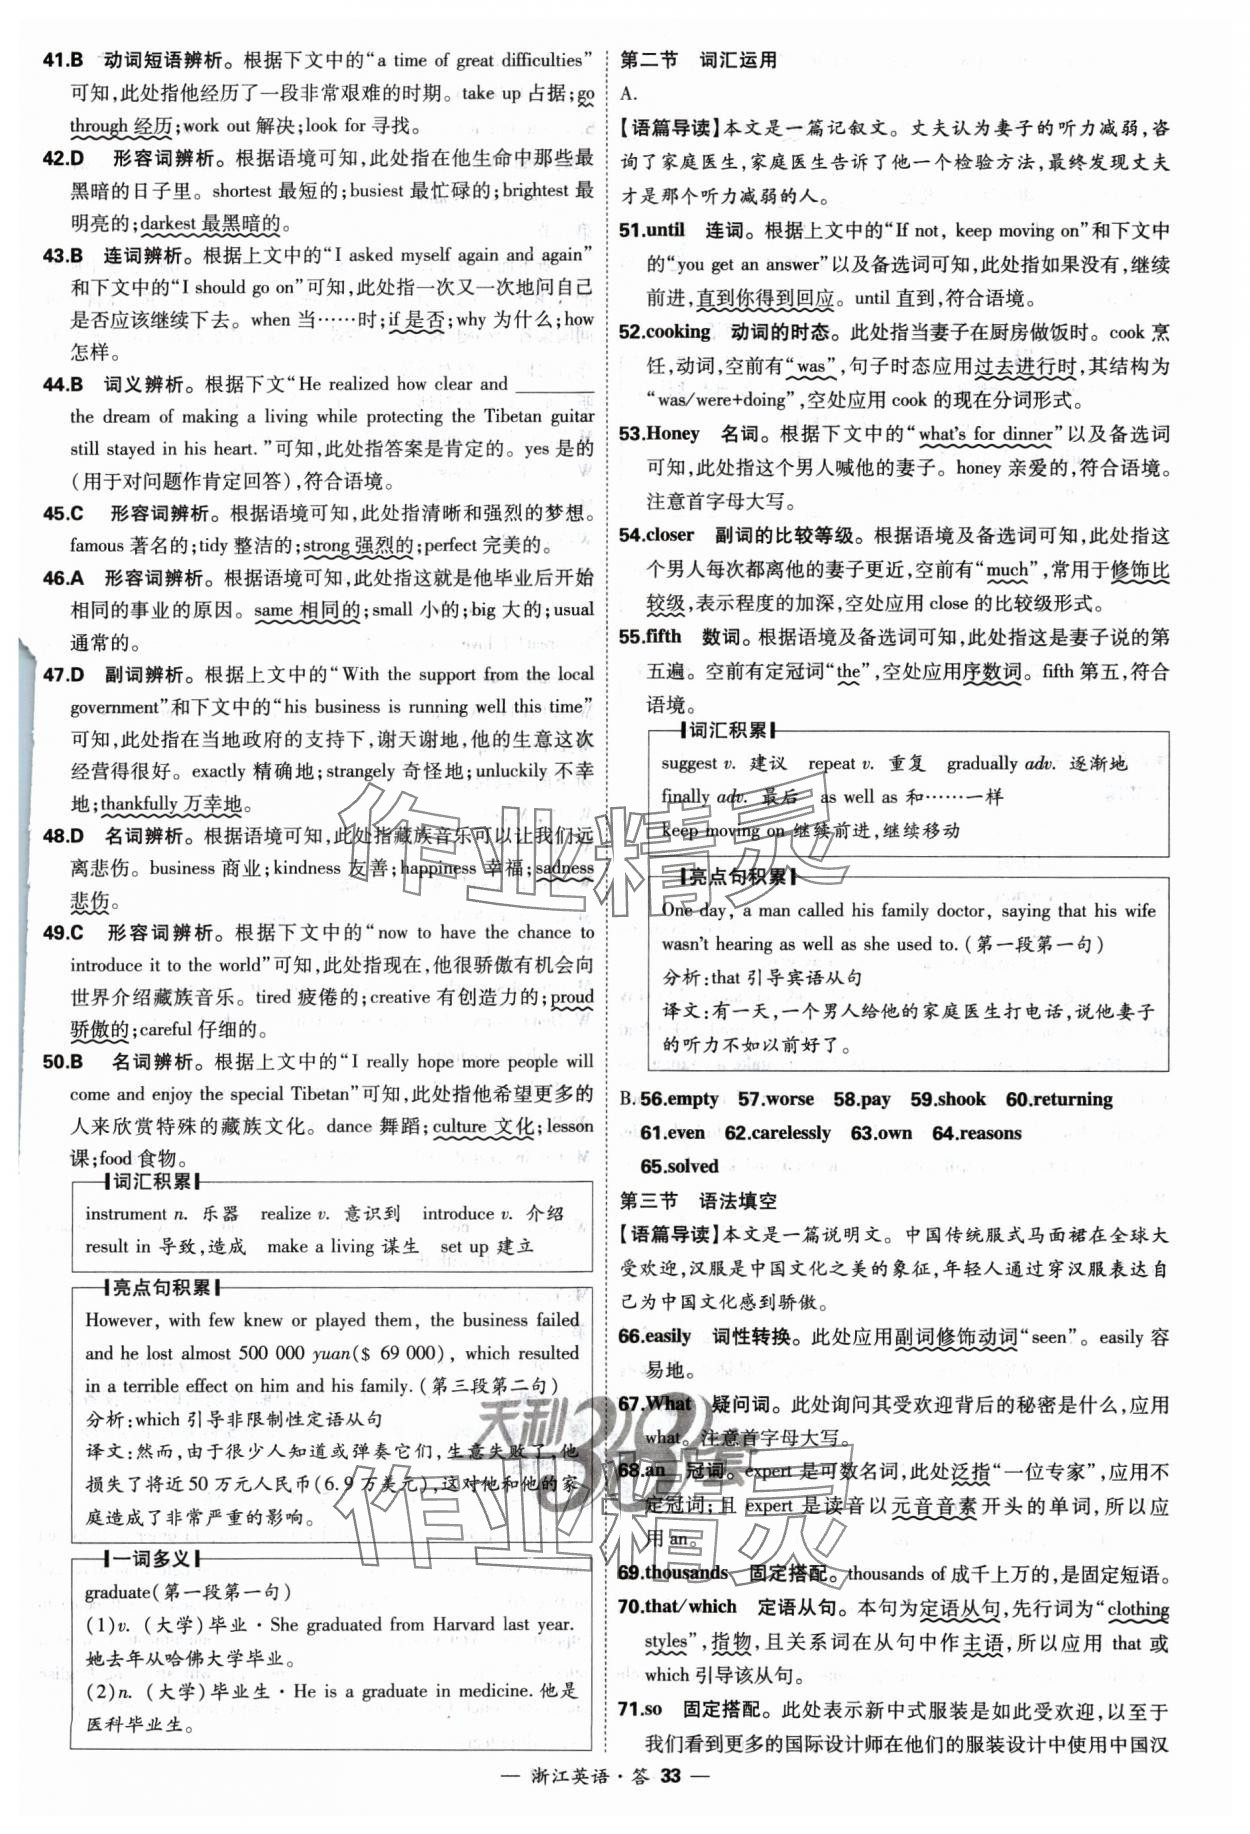 41.B 动词短语辨析。根据下文中的“a time of great difficulties”
可知,此处指他经历了一段非常艰难的时期。take up 占据;go
through 经历;work out 解决;look for 寻找。
42.D 形容词辨析。根据语境可知,此处指在他生命中那些最
黑暗的日子里。shortest 最短的;busiest 最忙碌的;brightest 最
明亮的;darkest 最黑暗的。
43.B 连词辨析。根据上文中的“I asked myself again and again”
和下文中的“I should go on”可知,此处指一次又一次地问自己
是否应该继续下去。when 当……时;if 是否;why 为什么;how
怎样。
44.B 词义辨析。根据下文“He realized how clear and ________
the dream of making a living while protecting the Tibetan guitar
still stayed in his heart.”可知,此处指答案是肯定的。yes 是的
(用于对问题作肯定回答),符合语境。
45.C 形容词辨析。根据语境可知,此处指清晰和强烈的梦想。
famous 著名的;tidy 整洁的;strong 强烈的;perfect 完美的。
46.A 形容词辨析。根据语境可知,此处指这就是他毕业后开始
相同的事业的原因。same 相同的;small 小的;big 大的;usual
通常的。
47.D 副词辨析。根据上文中的“With the support from the local
government”和下文中的“his business is running well this time”
可知,此处指在当地政府的支持下,谢天谢地,他的生意这次
经营得很好。exactly 精确地;strangely 奇怪地;unluckily 不幸
地;thankfully 万幸地。
48.D 名词辨析。根据语境可知,此处指藏族音乐可以让我们远
离悲伤。business 商业;kindness 友善;happiness 幸福;sadness
悲伤。
49.C 形容词辨析。根据下文中的“now to have the chance to
introduce it to the world”可知,此处指现在,他很骄傲有机会向
世界介绍藏族音乐。tired 疲倦的;creative 有创造力的;proud
骄傲的;careful 仔细的。
50.B 名词辨析。根据上文中的“I really hope more people will
come and enjoy the special Tibetan”可知,此处指他希望更多的
人来欣赏特殊的藏族文化。dance 舞蹈;culture 文化;lesson
课;food 食物。
词汇积累
instrument n. 乐器 realize v. 意识到 introduce v. 介绍
result in 导致,造成 make a living 谋生 set up 建立
亮点句积累
However, with few knew or played them, the business failed
and he lost almost 500 000 yuan($ 69 000), which resulted
in a terrible effect on him and his family.(第三段第二句)
分析:which 引导非限制性定语从句
译文:然而,由于很少人知道或弹奏它们,生意失败了,他
损失了将近 50 万元人民币(6.9 万美元),这对他和他的家
庭造成了非常严重的影响。
一词多义
graduate(第一段第一句)
(1)v. (大学)毕业·She graduated from Harvard last year.
她去年从哈佛大学毕业。
(2)n. (大学)毕业生·He is a graduate in medicine. 他是
医科毕业生。
第二节 词汇运用
A.
【语篇导读】本文是一篇记叙文。丈夫认为妻子的听力减弱,咨
询了家庭医生,家庭医生告诉了他一个检验方法,最终发现丈夫
才是那个听力减弱的人。
51.until 连词。根据上文中的“If not, keep moving on”和下文中
的“you get an answer”以及备选词可知,此处指如果没有,继续
前进,直到你得到回应。until 直到,符合语境。
52.cooking 动词的时态。此处指当妻子在厨房做饭时。cook 烹
饪,动词,空前有“was”,句子时态应用过去进行时,其结构为
“was/were+doing”,空处应用 cook 的现在分词形式。
53.Honey 名词。根据下文中的“what's for dinner”以及备选词
可知,此处指这个男人喊他的妻子。honey 亲爱的,符合语境。
注意首字母大写。
54.closer 副词的比较等级。根据语境及备选词可知,此处指这
个男人每次都离他的妻子更近,空前有“much”,常用于修饰比
较级,表示程度的加深,空处应用 close 的比较级形式。
55.fifth 数词。根据语境及备选词可知,此处指这是妻子说的第
五遍。空前有定冠词“the”,空处应用序数词。fifth 第五,符合
语境。
词汇积累
suggest v. 建议 repeat v. 重复 gradually adv. 逐渐地
finally adv. 最后 as well as 和……一样
keep moving on 继续前进,继续移动
亮点句积累
One day, a man called his family doctor, saying that his wife
wasn't hearing as well as she used to.(第一段第一句)
分析:that 引导宾语从句
译文:有一天,一个男人给他的家庭医生打电话,说他妻子
的听力不如以前好了。
B. 56.empty 57.worse 58.pay 59.shook 60.returning
61.even 62.carelessly 63.own 64.reasons
65.solved
第三节 语法填空
【语篇导读】本文是一篇说明文。中国传统服式马面裙在全球大
受欢迎,汉服是中国文化之美的象征,年轻人通过穿汉服表达自
己为中国文化感到骄傲。
66.easily 词性转换。此处应用副词修饰动词“seen”。easily 容
易地。
67.What 疑问词。此处询问其受欢迎背后的秘密是什么,应用
what。注意首字母大写。
68.an 冠词。expert 是可数名词,此处泛指“一位专家”,应用不
定冠词;且 expert 是读音以元音音素开头的单词,所以应
用 an。
69.thousands 固定搭配。thousands of 成千上万的,是固定短语。
70.that/which 定语从句。本句为定语从句,先行词为“clothing
styles”,指物,且关系词在从句中作主语,所以应用 that 或
which 引导该从句。
71.so 固定搭配。此处表示新中式服装是如此受欢迎,以至于
我们看到更多的国际设计师在他们的服装设计中使用中国汉
— 浙江英语·答 33 —
作业精灵
天利38套
作业精灵